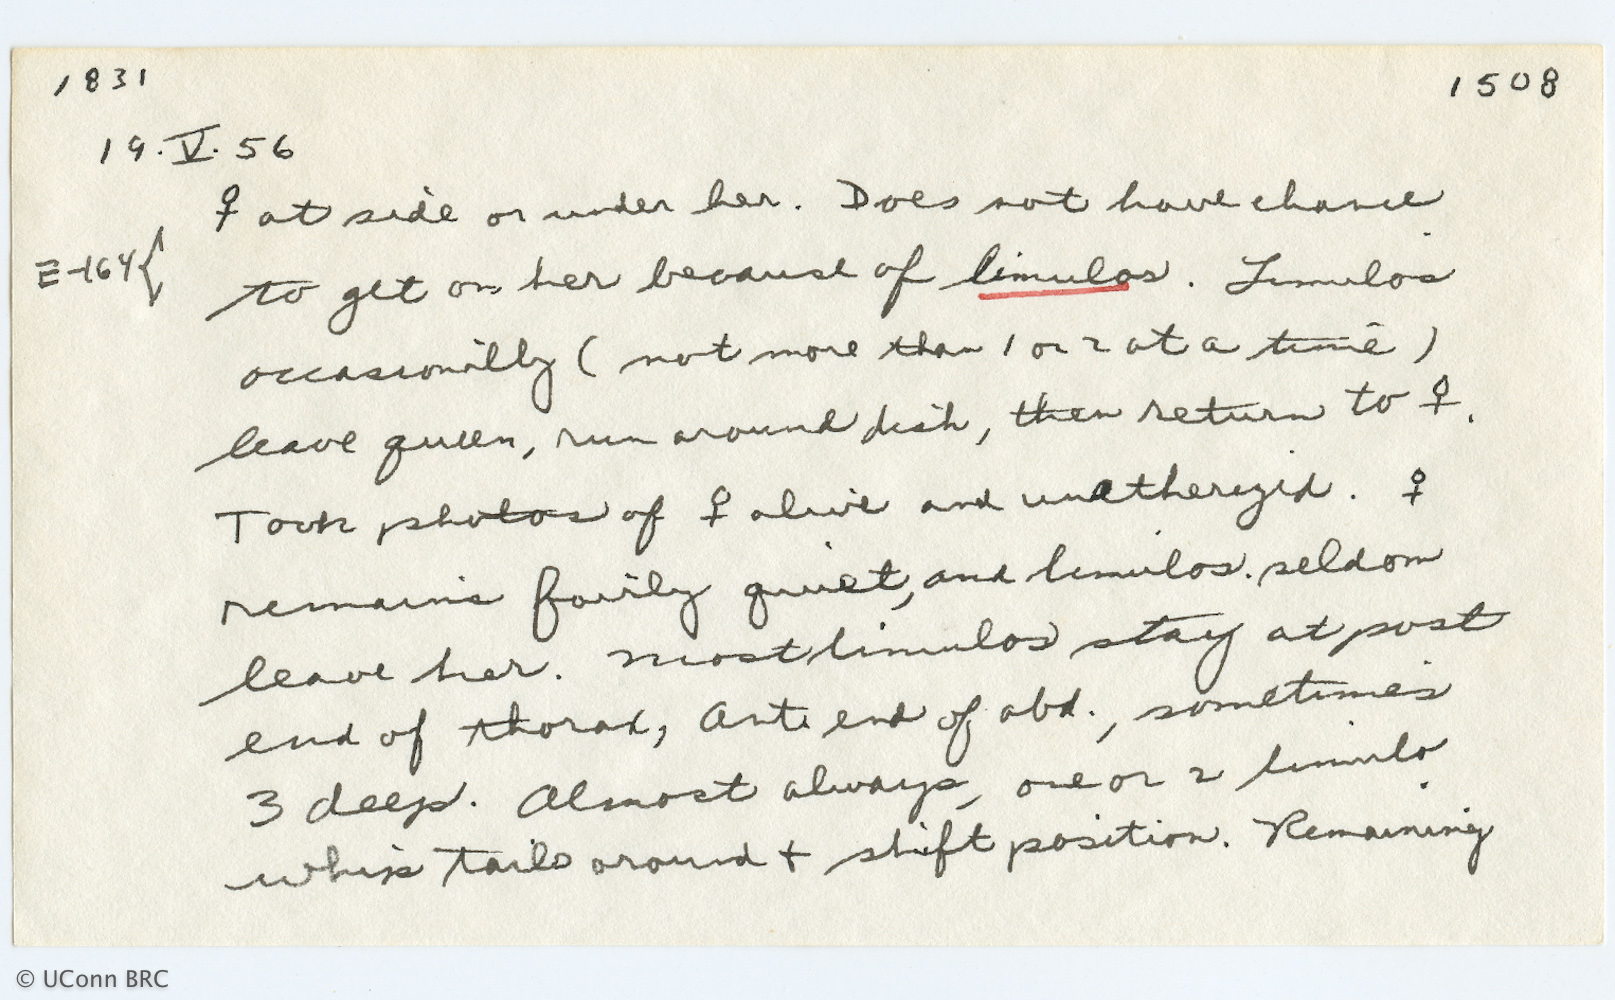 1831
1508
19.V.56
♀ at side or under her. Does not have chance
E-164{
to get on her because of limulos. Limulos
occasionally (not more than 1 or 2 at a time)
leave queen, run around dish, then return to ♀.
Took photos of ♀ alive and unetherizid. ♀
remains fairly quiet, and limulos. seldom
leave her. Most limulos stay at post
end of thorax, ant. end of abd., sometimes
3 deep. Almost always, one or 2 limulo
whip tails around + shift position. Remaining
© UConn BRC